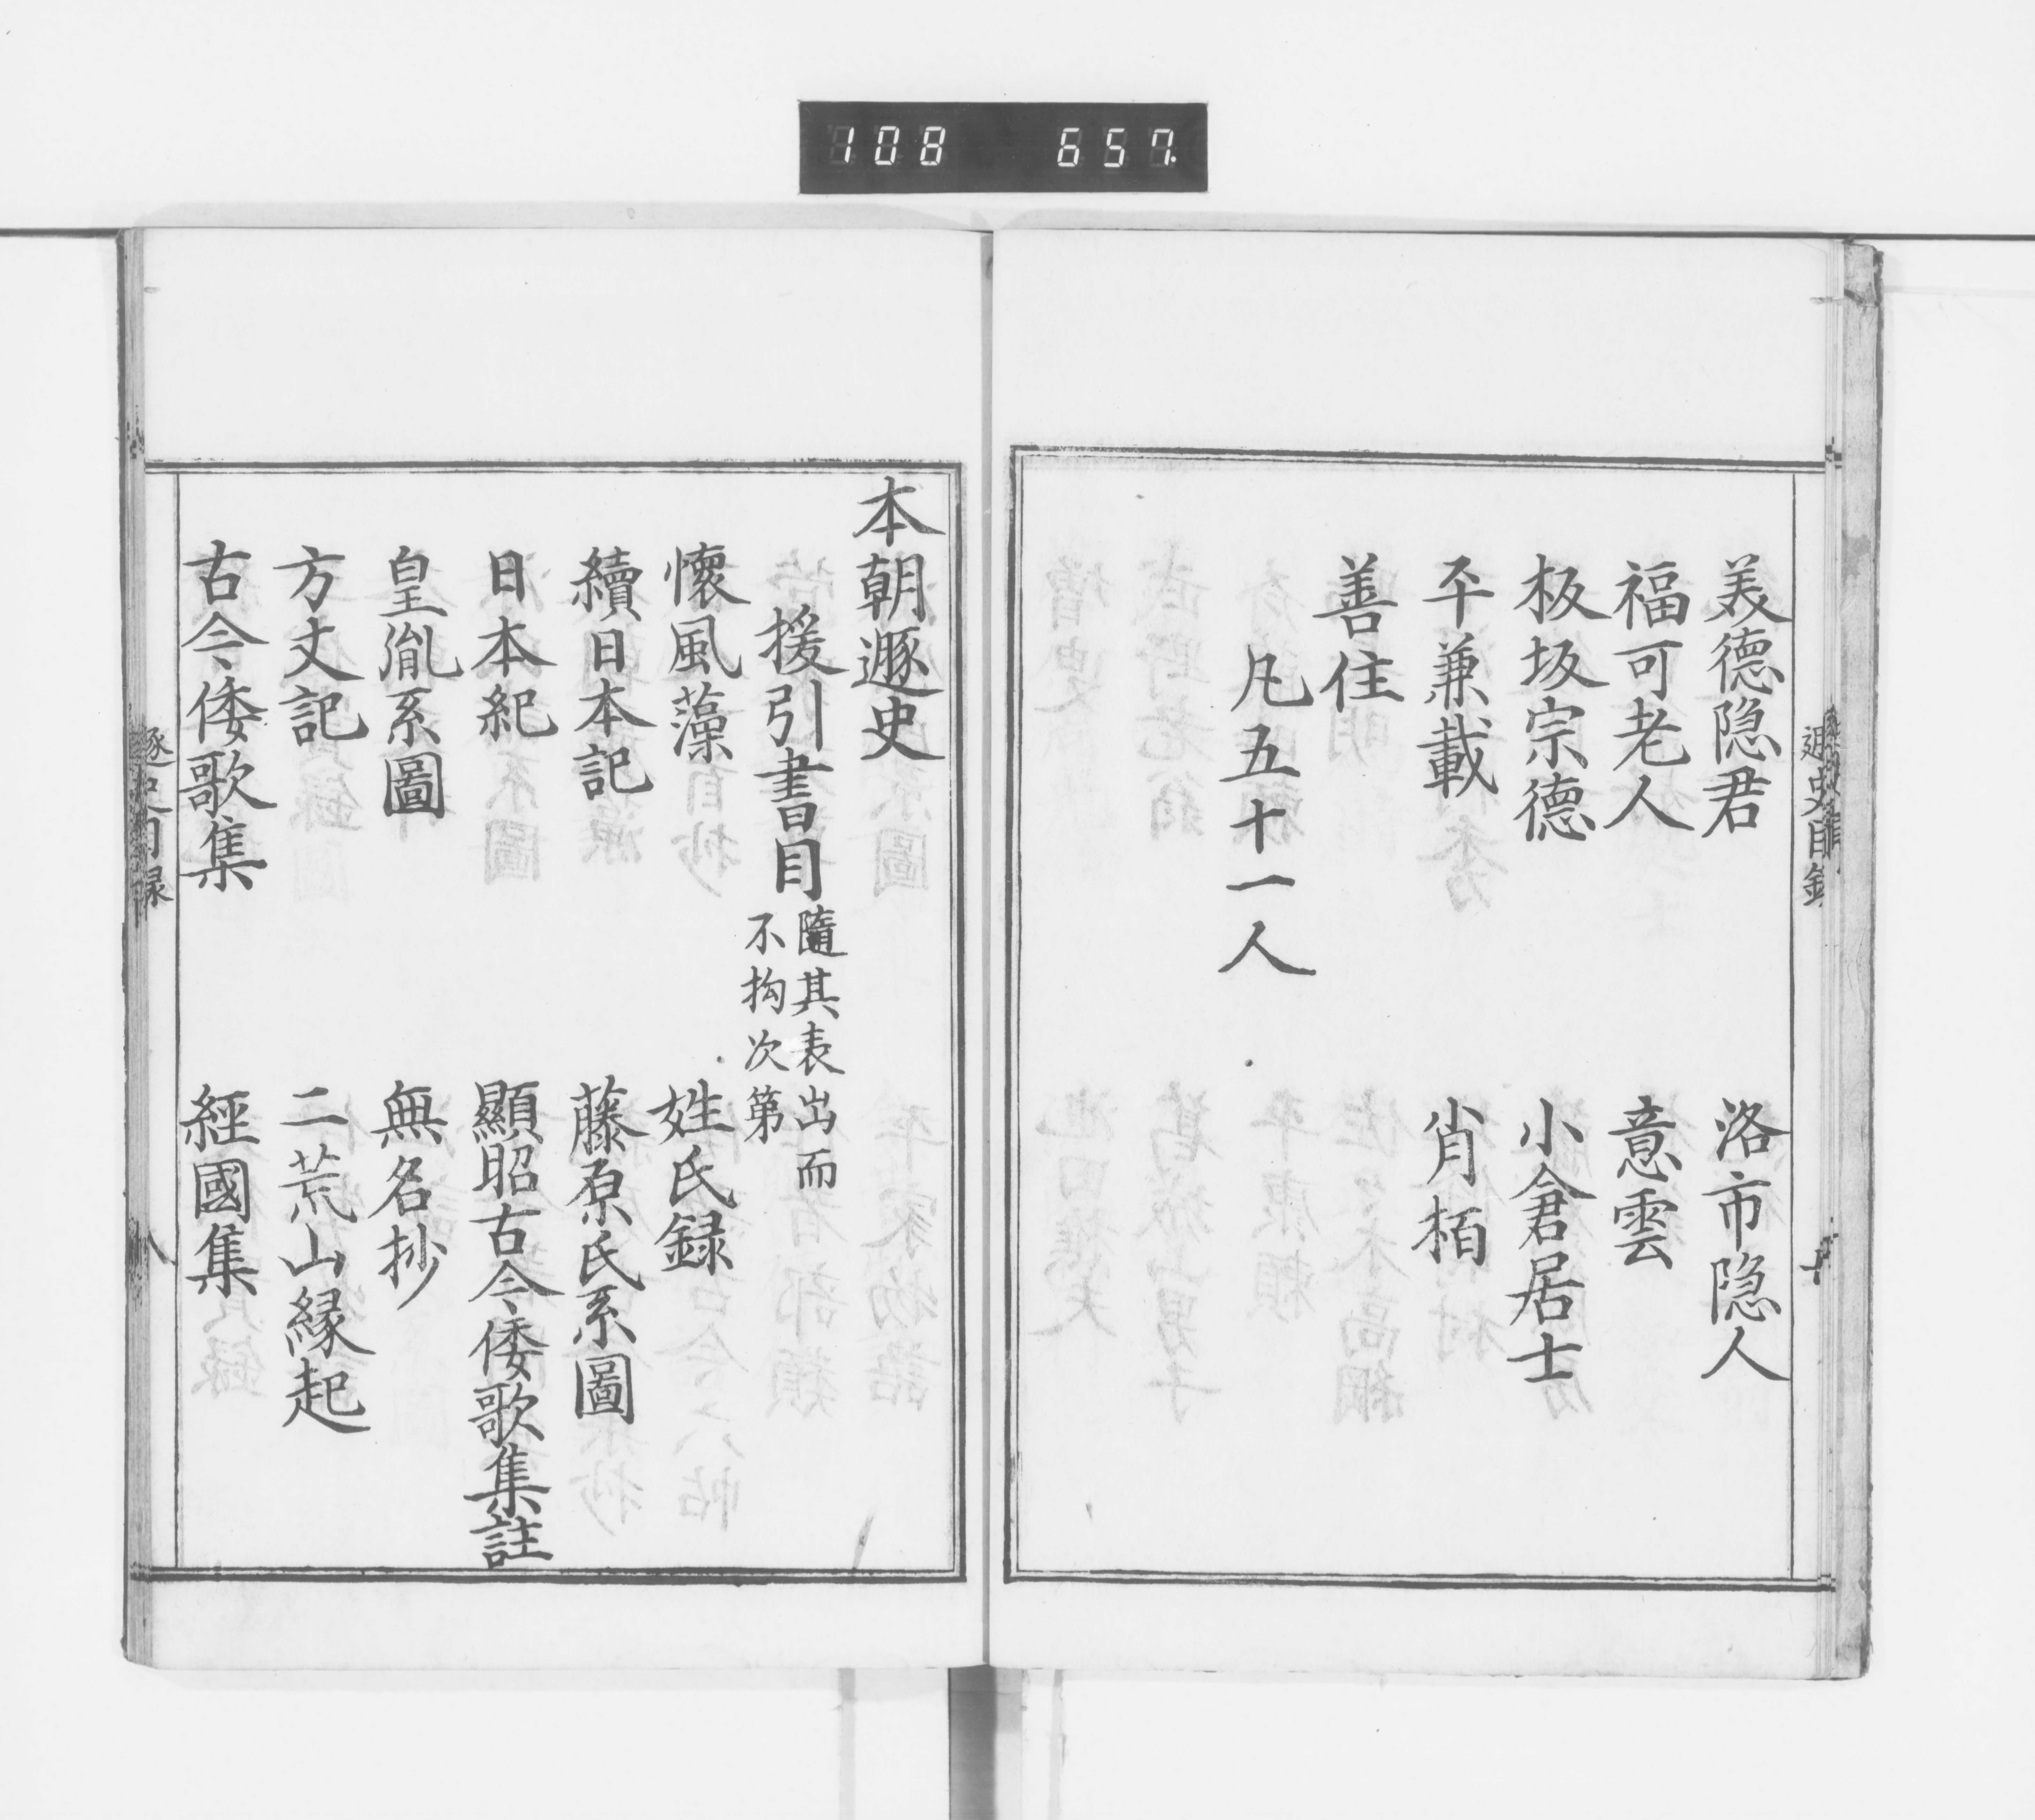 108 657
遯史目録
美德隐君
洛市隐人
福可老人
意雲
板坂宗德
小倉居士
平兼載
肖栢
善住
凡五十一人
本朝遯史
援引書目
隨其表出而
不拘次第
懷風藻
姓氏録
續日本記
藤原氏系圖
日本紀
顯昭古今倭歌集註
皇胤系圖
無名抄
方丈記
二荒山縁起
古今倭歌集
經國集